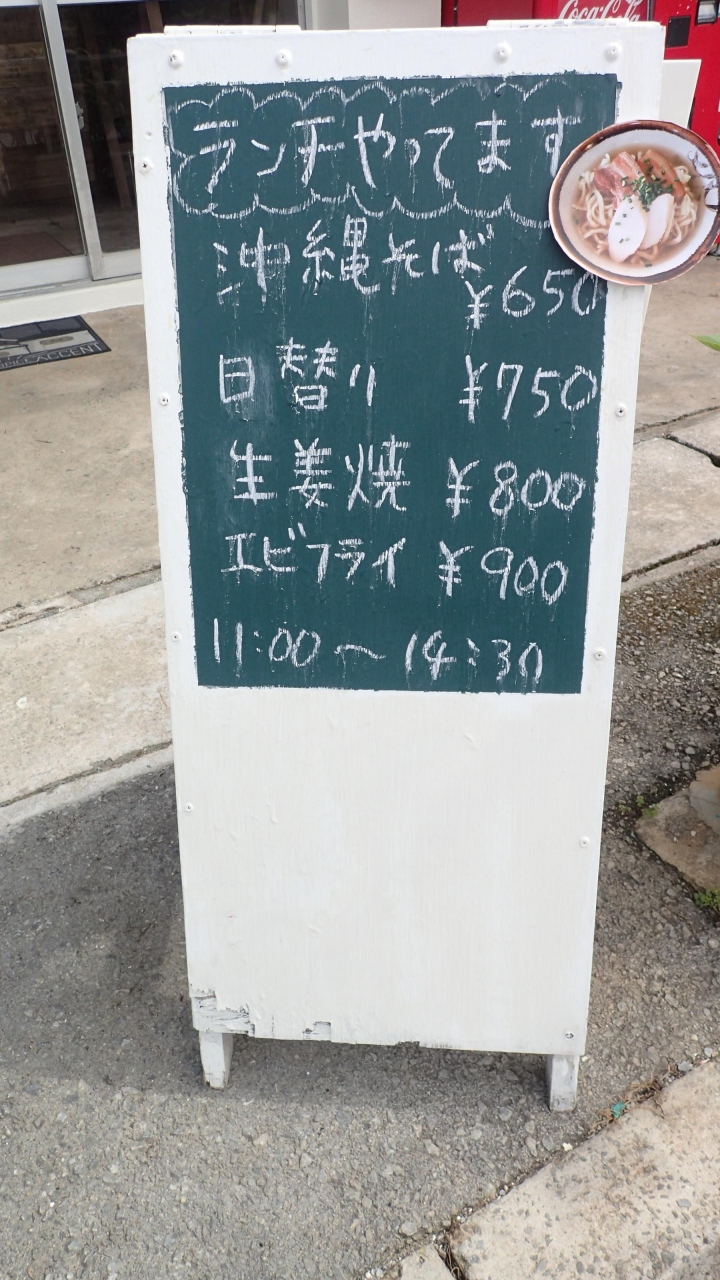 Coca-Cola
ランチやってます
沖縄そば
¥650
日替り ¥750
生姜焼 ¥800
エビフライ ¥900
11:00〜14:30
ACCENT